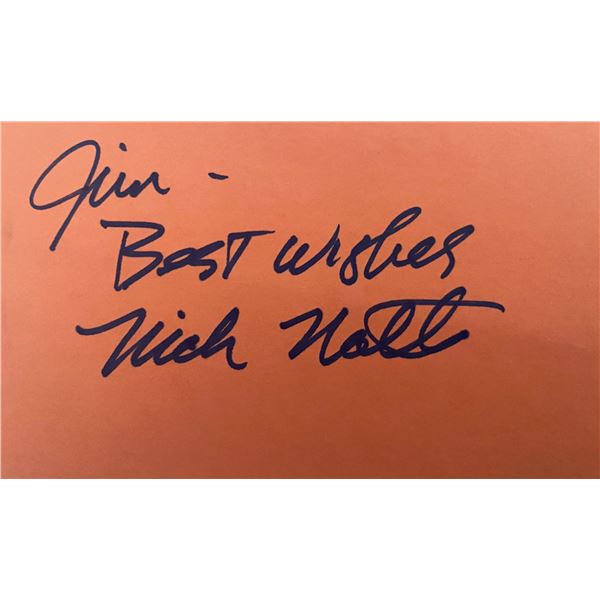 Jim -
Best Wishes
Nick Nolte